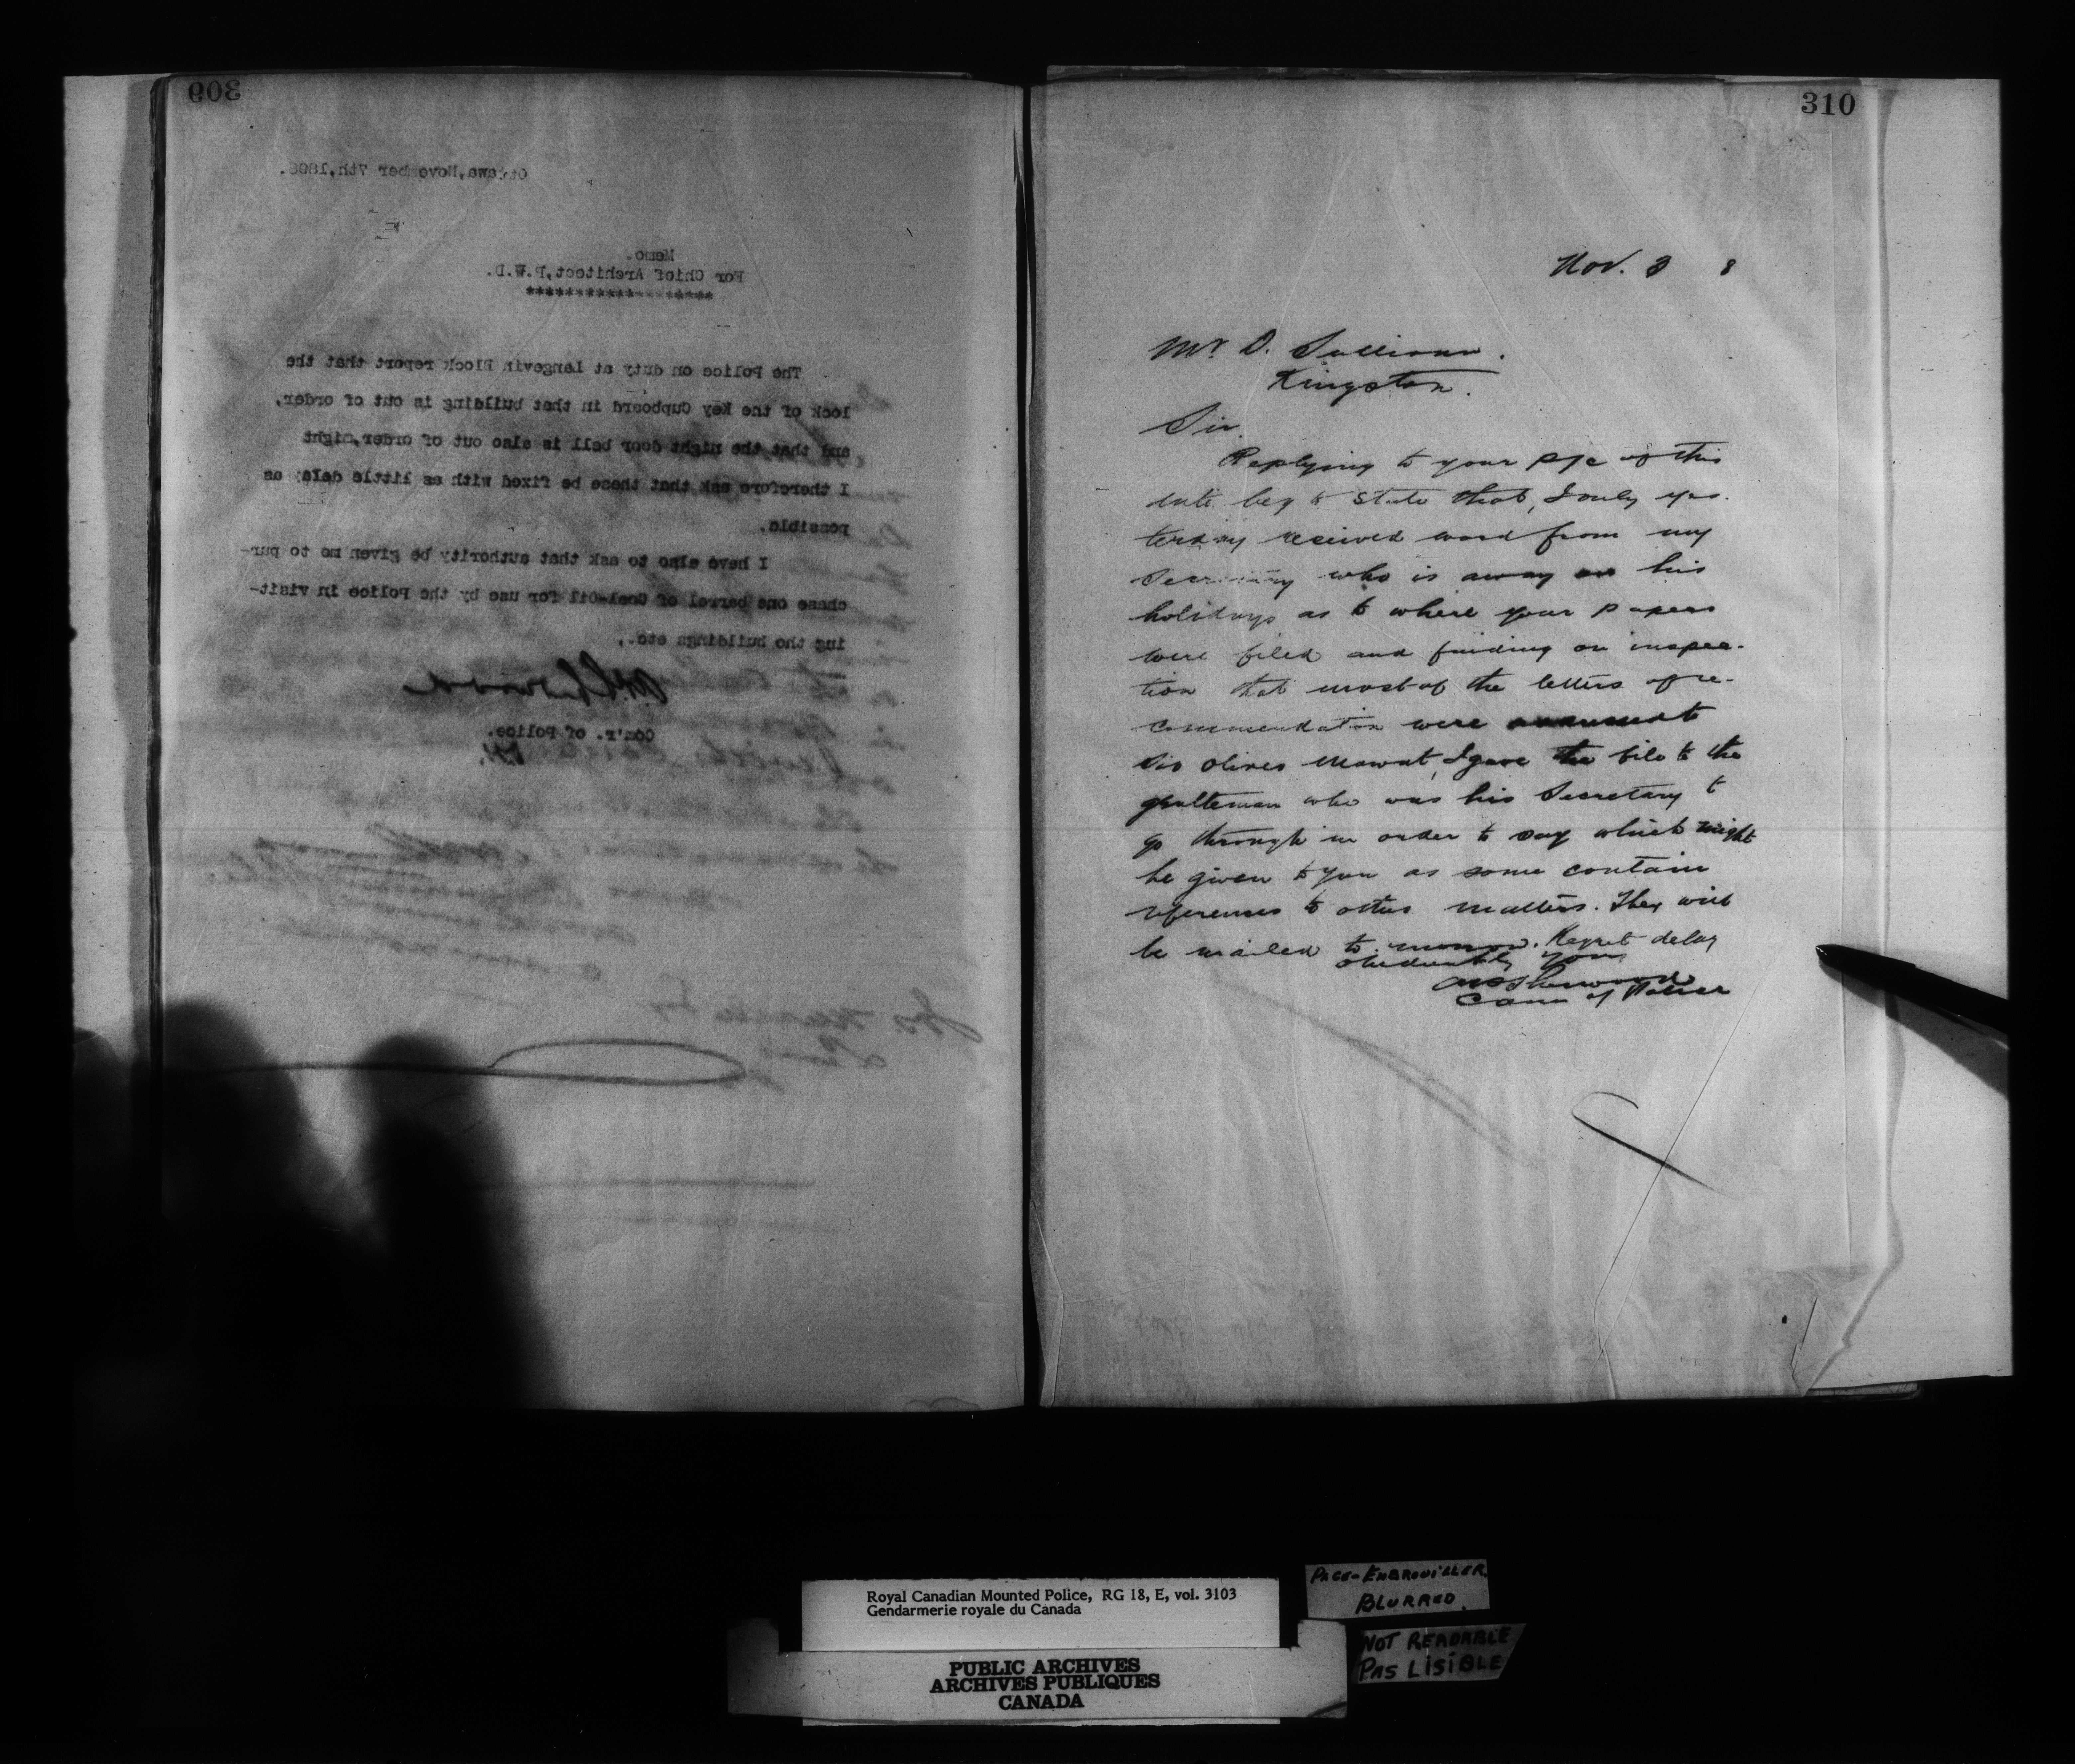 309
Ottawa, November 7th, 1898.
Memo.
For Chief Architect, P.W.D.
The Police on duty at Langevin Block report that the
lock of the Key Cupboard in that building is out of order,
and that the night door bell is also out of order, might
I therefore ask that these be fixed with as little delay as
possible.
I have also to ask that authority be given me to pur-
chase one barrel of Coal-Oil for use by the Police in visit-
ing the buildings etc.,
Com'r. of Police.
310
Nov. 8 8
Mr D. Sullivan.
Kingston.
Sir
Replying to your p/c of this
date beg to state that, I only yes-
terday received word from my
Secretary who is away on his
holidays as to where your papers
were filed and finding on inspec-
tion that most of the letters of re-
commendation were
Sir Oliver Mowat, I gave the file to the
gentleman who was his Secretary to
go through in order to say which might
be given to you as some contain
references to other matters. They will
be mailed to morrow. Regret delay
Obediently Yours
A P Sherwood
Com of Police
Royal Canadian Mounted Police, RG 18, E, vol. 3103
Gendarmerie royale du Canada
PUBLIC ARCHIVES
ARCHIVES PUBLIQUES
CANADA
PAGE-EMBROUILLER
BLURRED.
NOT READABLE
PAS LISIBLE